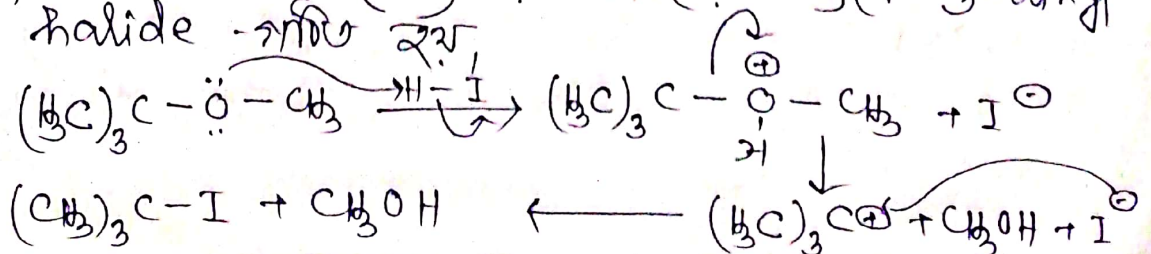 halide গঠিত হয়
(H₃C)₃C – Ö – CH₃ →H – I → (H₃C)₃C – O⊕ – CH₃ + I⊖
H ↓
(CH₃)₃C – I + CH₃OH ← (H₃C)₃C⊕ + CH₃OH + I⊖